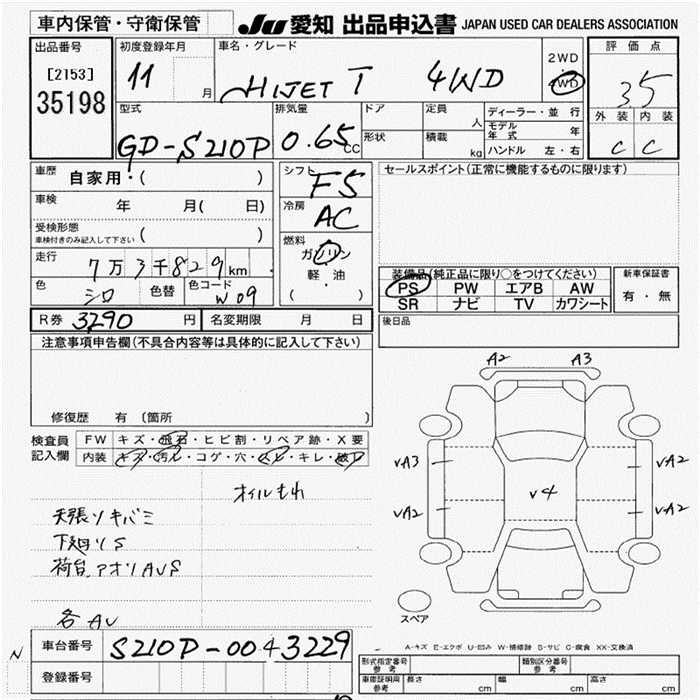 車内保管・守衛保管
JU 愛知 出品申込書 JAPAN USED CAR DEALERS ASSOCIATION
出品番号
[2153]
35198
初度登録年月
11 月
車名・グレード
HIJET T 4WD
2WD
4WD
評価点
3.5
外装 内装
C C
型式
GD-S210P
排気量
0.65 CC
ドア
形状
定員 人
積載 kg
ディーラー・並行
モデル年式 年
ハンドル 左・右
車歴
自家用・( )
車検 年 月( 日)
受検形態
車検付きのみ記入して下さい ( )
走行
7万3千829km
色 シロ 色替 色コード W09
シフト
F5
冷房
AC
燃料
ガソリン
軽・油
( ・ )
セールスポイント(正常に機能するものに限ります)
装備品(純正品に限り○をつけてください)
PS PW エアB AW
SR ナビ TV カワシート
新車保証書
有・無
後日品
R券 3290 円 名変期限 月 日
注意事項申告欄(不具合内容等は具体的に記入して下さい)
修復歴 有 〔箇所 〕
検査員記入欄
FW キズ・飛石・ヒビ割・リペア跡・X要
内装 キズ・汚れ・コゲ・穴・スレ・キレ・破れ
オイルもれ
天張リキバミ
下廻りS
荷台アオリAUS
各AU
A2 A3
vA3 vA2
v4
vA2 vA2
スペア
A-キズ E-エクボ U-凹み W-補修跡 S-サビ C-腐食 XX-交換済
N
車台番号 S210P-0043229
登録番号
形式指定番号 参考
類別区分番号 参考
車庫証明用 参考 長さ cm 幅 cm 高さ cm